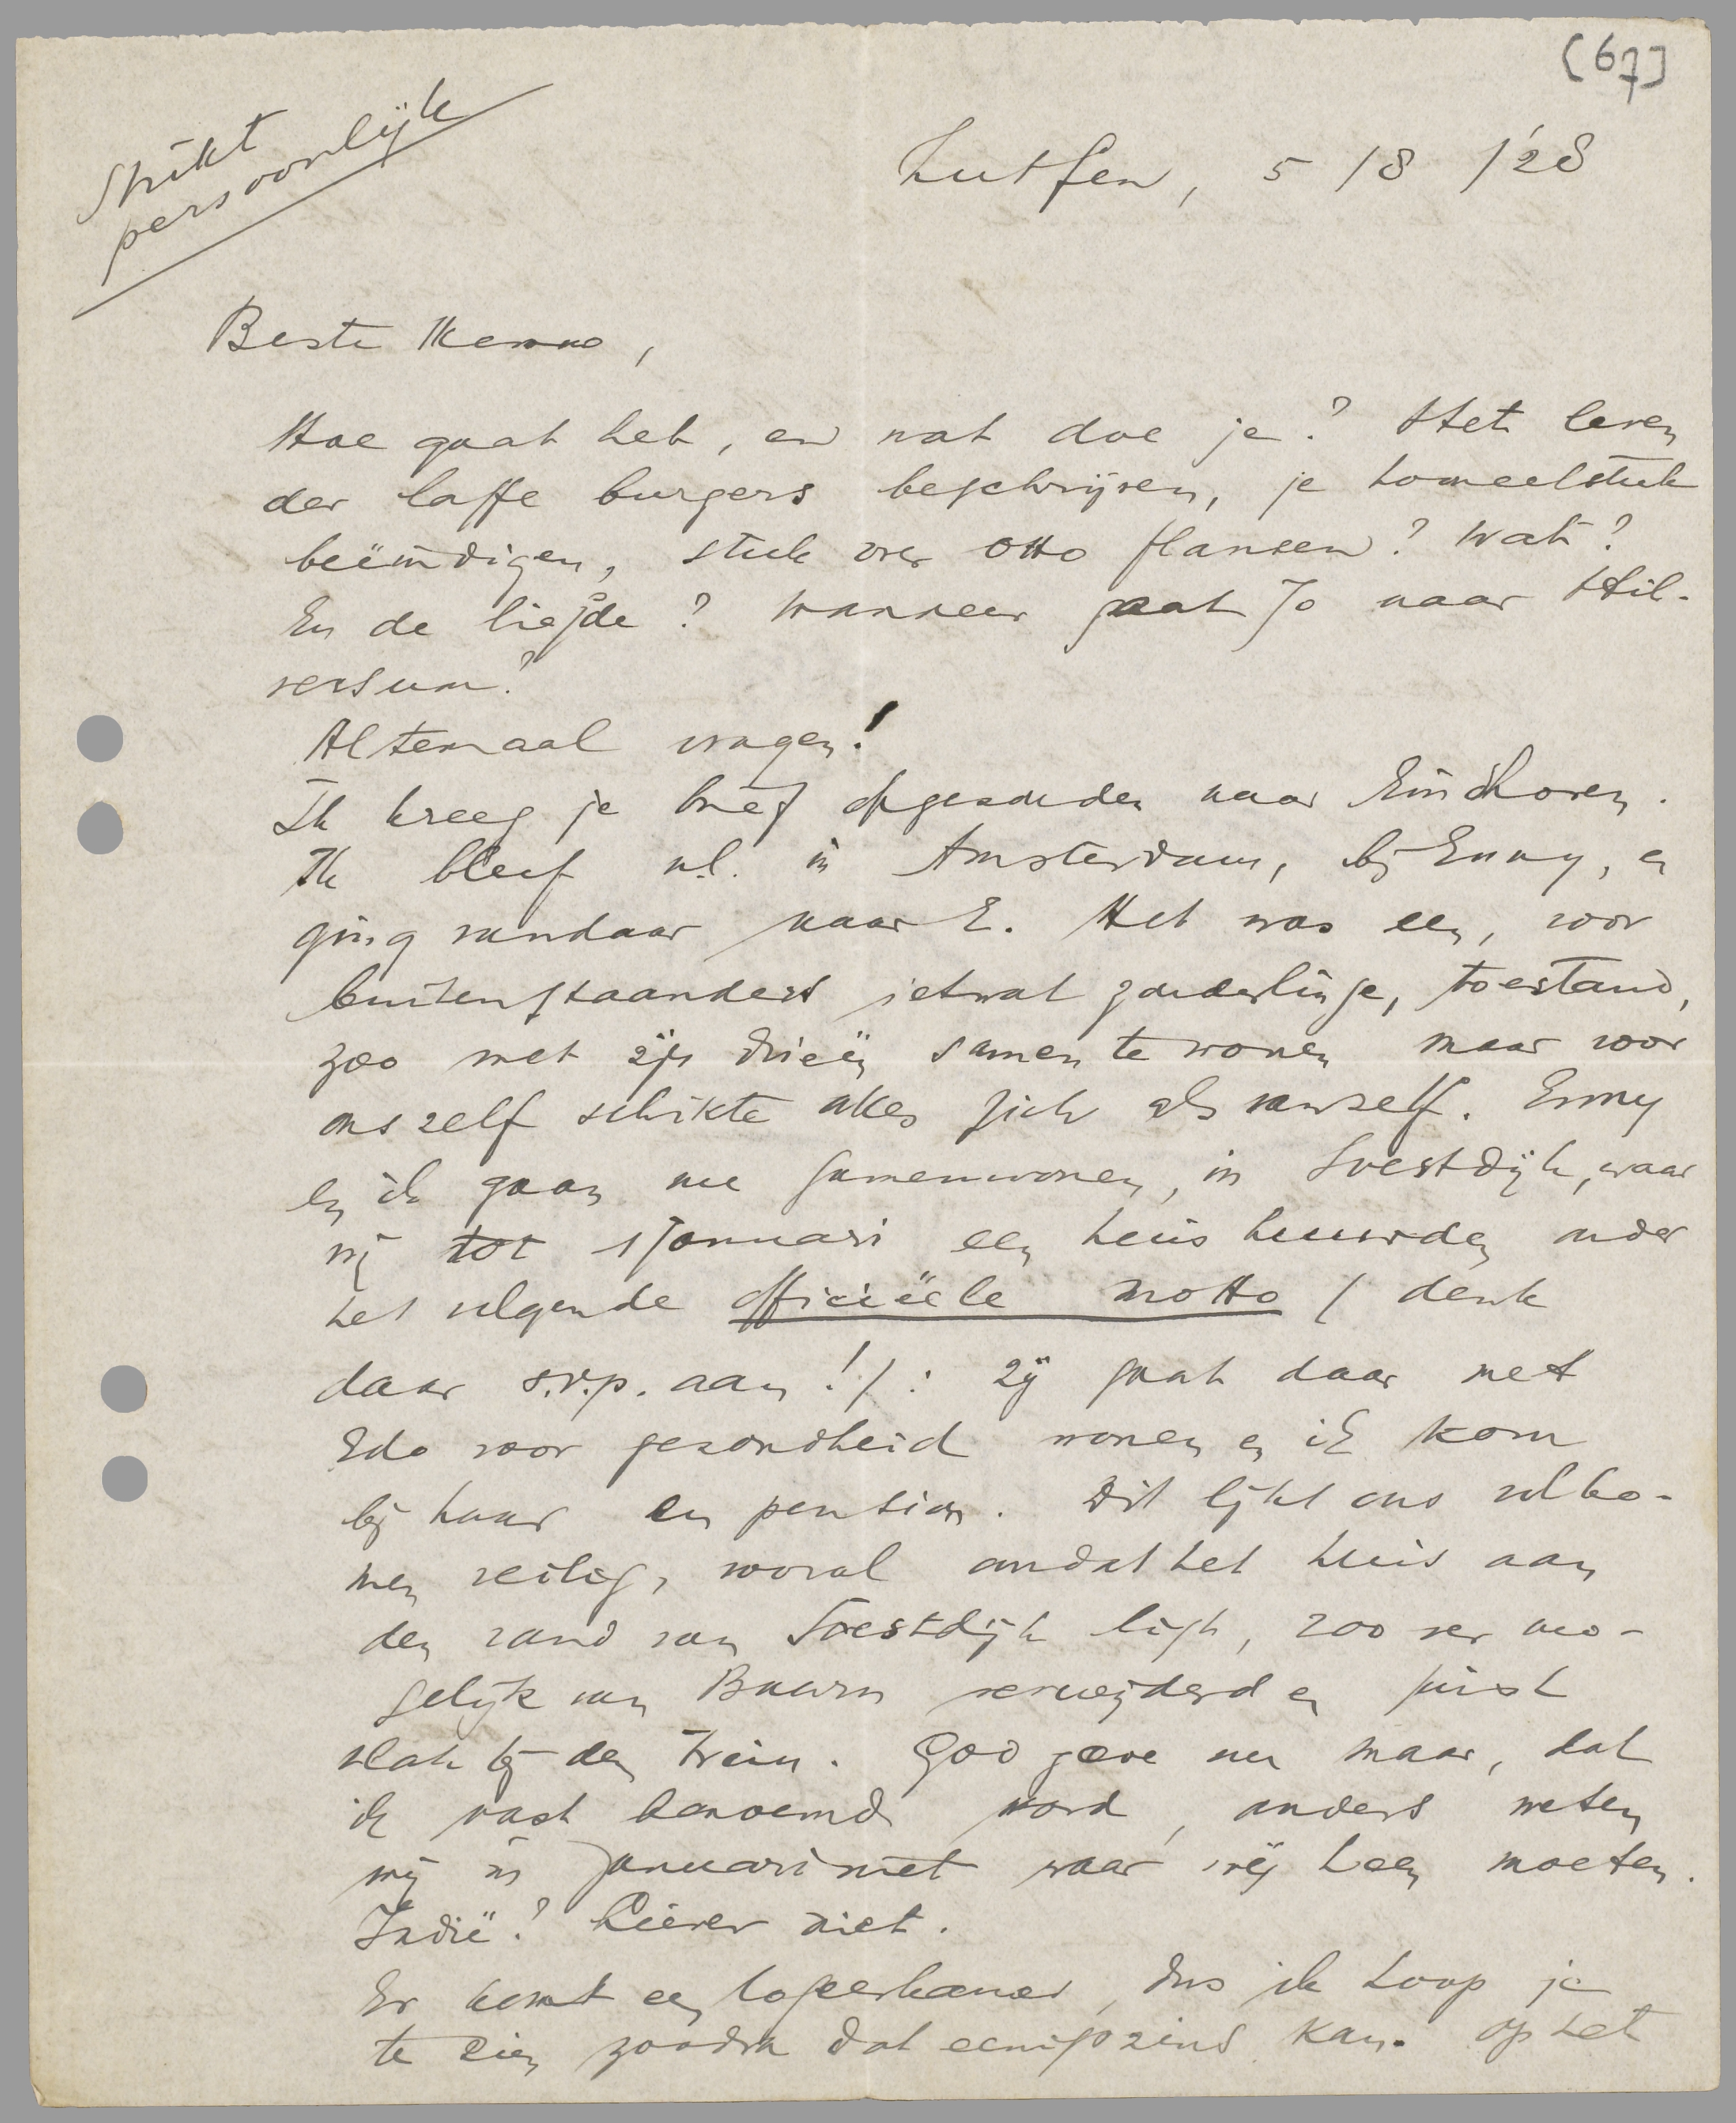 [67]
Strikt
persoonlijk
Zutfen, 5/8/'28
Beste Menno,
Hoe gaat het, en wat doe je? Het leven
der laffe burgers beschrijven, je tooneelstuk
beëindigen, stuk over Otto flansen? Wat?
En de liefde? Wanneer gaat Jo naar Hil-
versum?
Altemaal vragen!
Ik kreeg je brief opgezonden naar Eindhoven.
Ik bleef n.l. in Amsterdam, bij Enny, en
ging vandaar naar E. Het was een, voor
buitenstaanders ietwat zonderlinge, toestand,
zoo met z'n drieën samen te wonen maar voor
ons zelf schikte alles zich als vanzelf. Enny
en ik gaan nu samenwonen, in Soestdijk, waar
wij tot 1 Januari een huis huurden onder
het volgende officiëele motto (denk
daar s.v.p. aan!): zij gaat daar met
Edo voor gezondheid wonen en ik kom
bij haar en pension. Dit lijkt ons volko-
men veilig, vooral omdat het huis aan
den rand van Soestdijk ligt, zoo ver mo-
gelijk van Baarn verwijderd en juist
vlak bij den trein. God geve nu maar, dat
ik vast benoemd word, anders weten
wij in Januari niet waar wij heen moeten.
Indië? Liever niet.
Er komt een logeerkamer, dus ik hoop je
te zien zoodra dat eenigszins kan. Op het